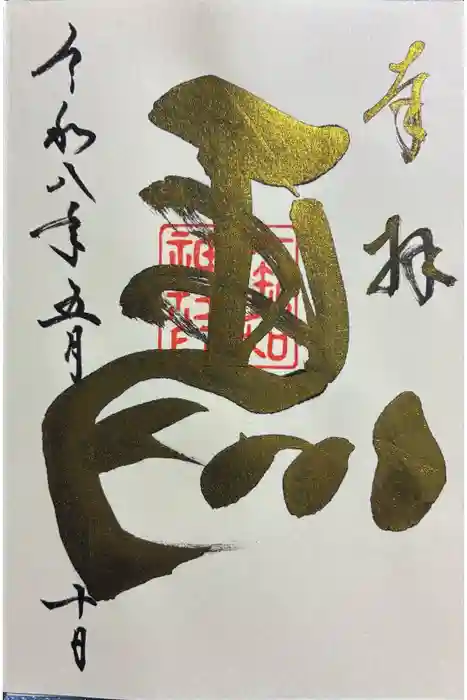 奉拝
馬
令和八年五月十日